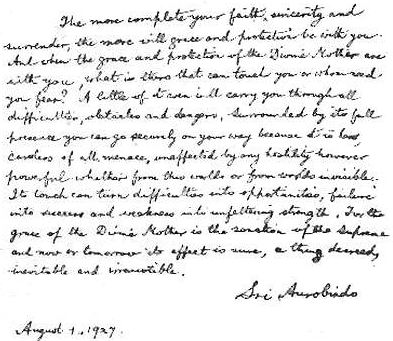 The more complete your faith, sincerity and
surrender, the more will grace and protection be with you.
And when the grace and protection of the Divine Mother are
with you, what is there that can touch you or whom need
you fear? A little of it even will carry you through all
difficulties, obstacles and dangers; surrounded by its full
presence you can go securely on your way because it is hers,
careless of all menace, unaffected by any hostility however
powerful, whether from this world or from worlds invisible.
Its touch can turn difficulties into opportunities, failure
into success and weakness into unfaltering strength. For the
grace of the Divine Mother is the sanction of the Supreme
and now or tomorrow its effect is sure, a thing decreed,
inevitable and irresistible.
Sri Aurobindo
August 1. 1927.